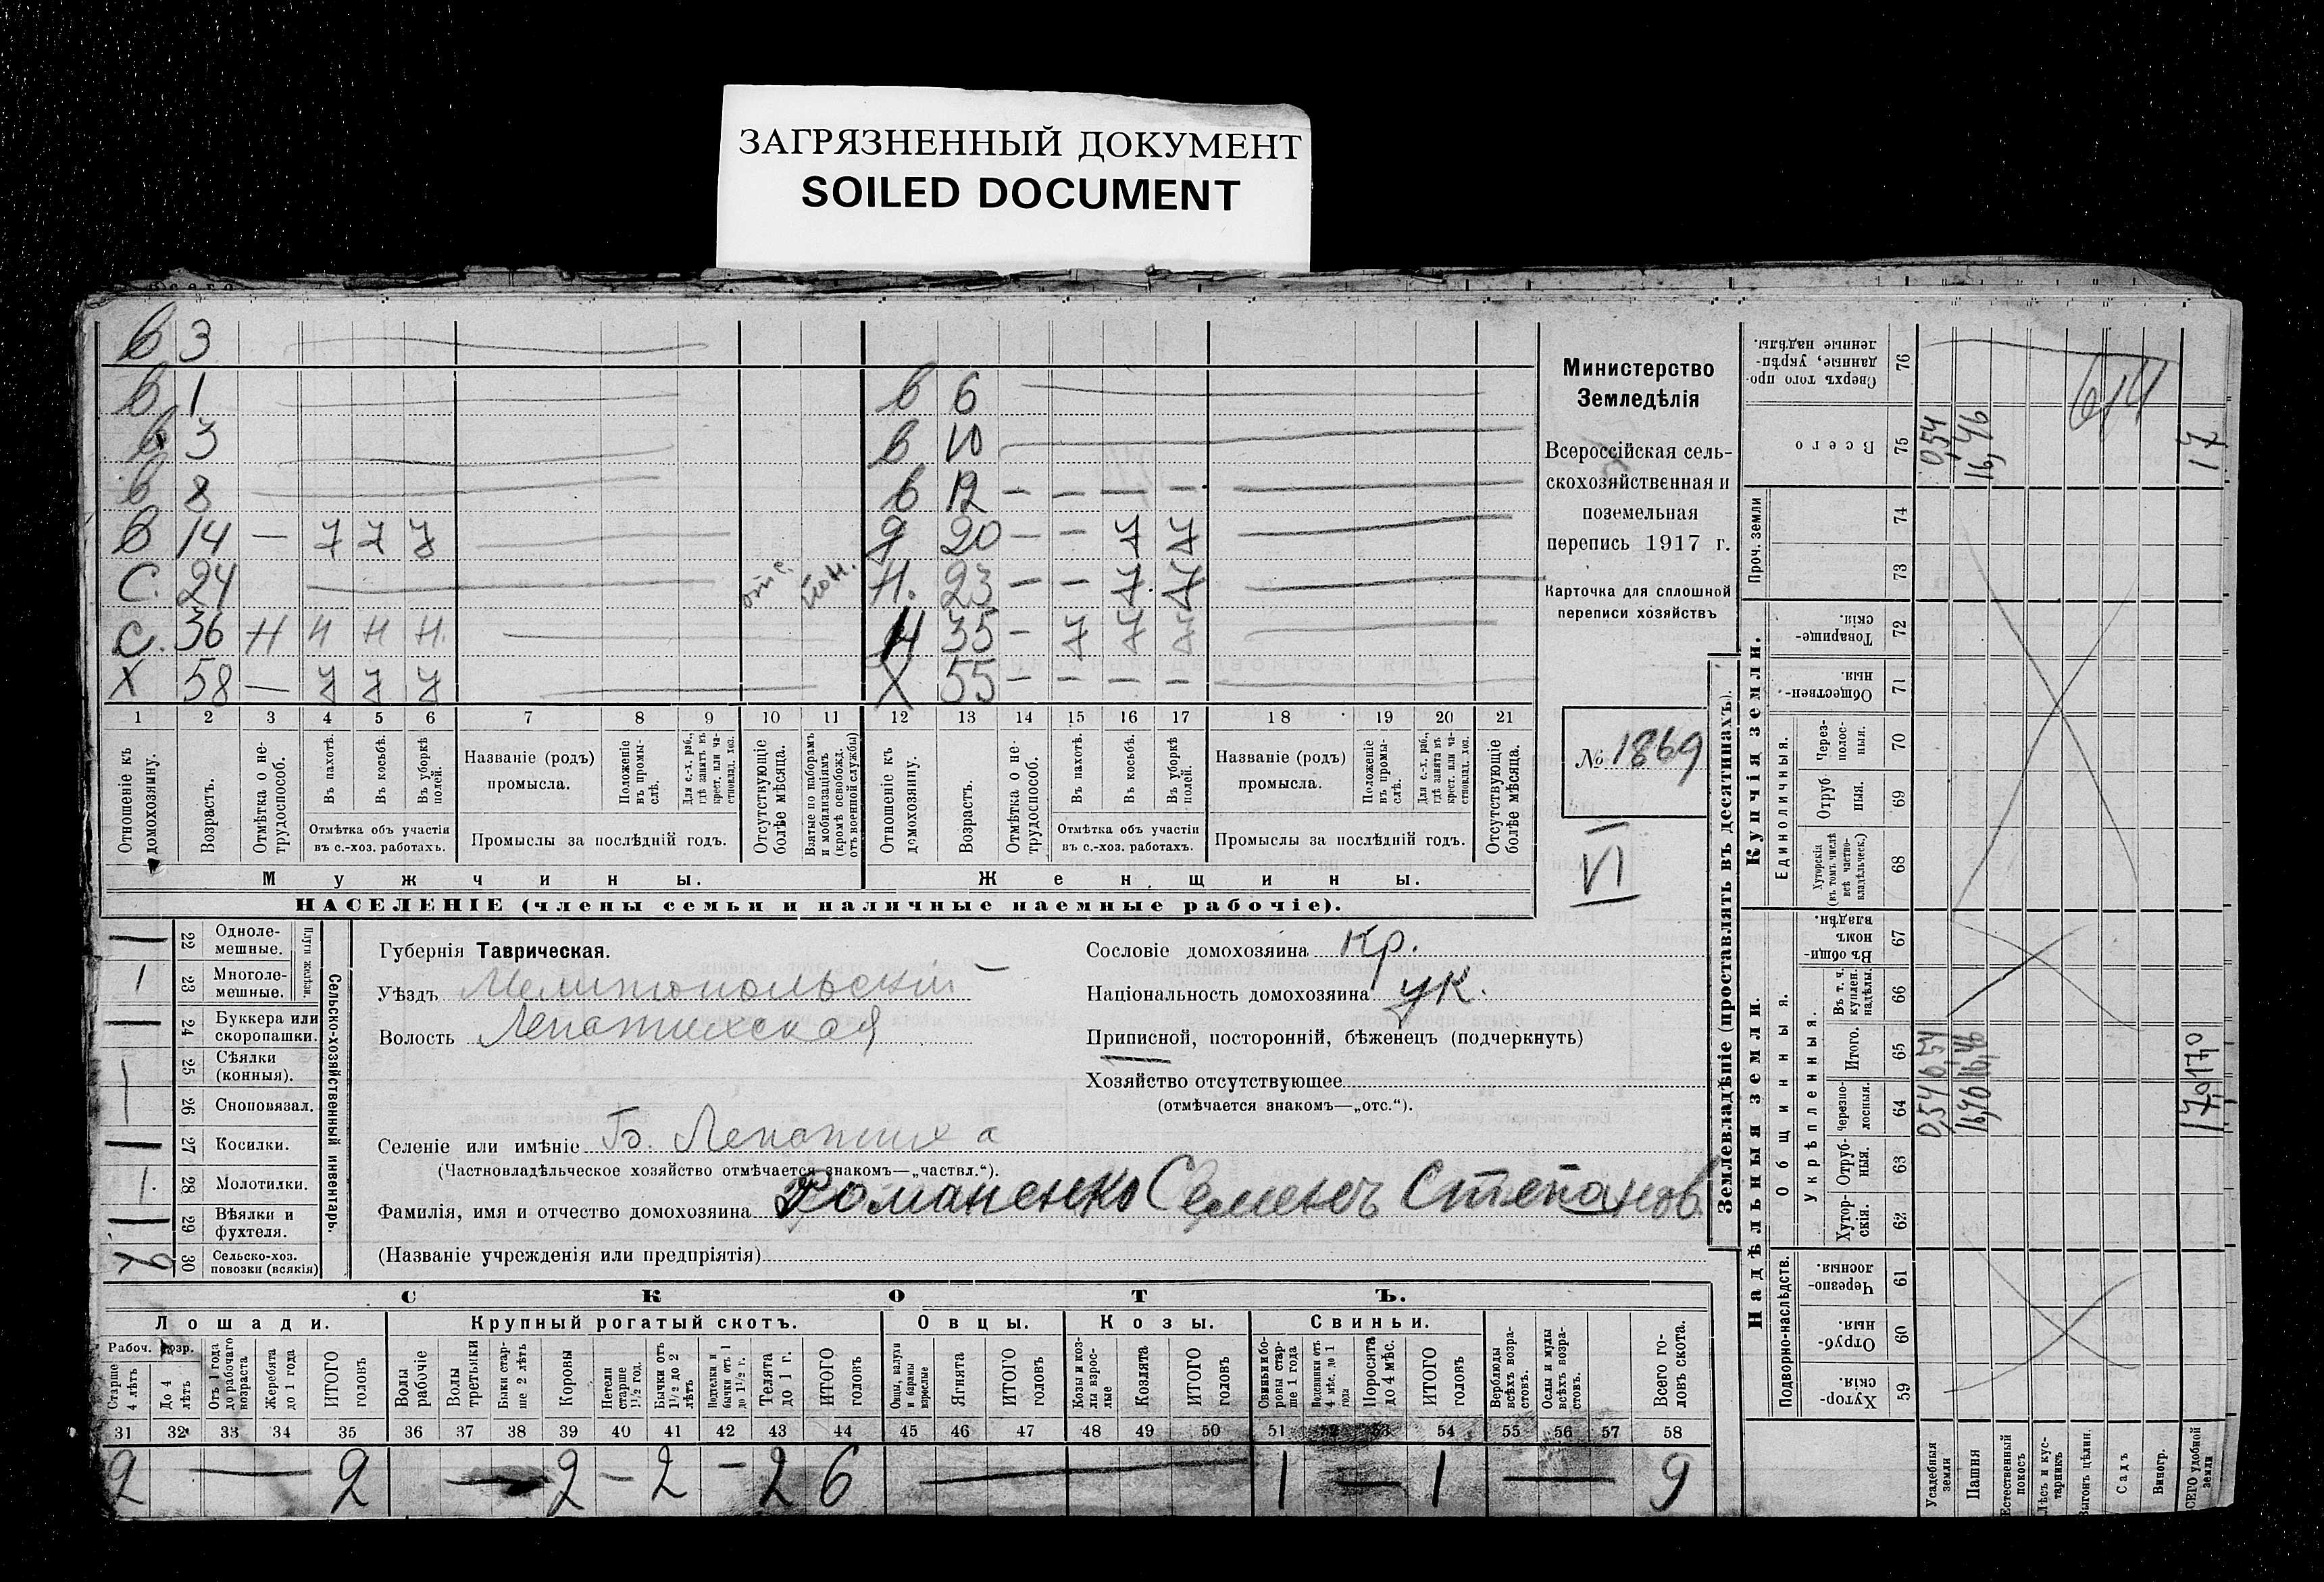 ЗАГРЯЗНЕННЫЙ ДОКУМЕНТ
SOILED DOCUMENT
В 3
В 1 В 6
В 3 В 10
В 8 В 12 — — — —
В 14 — 7 7 7 20 — — 7 7
С. 24 отс. Н. 23 — — 7 7
С. 36 Н Н Н Н. Н 35 — 7 7 7
Х 58 — 7 7 7 Х 55 — — — —
1 2 3 4 5 6 7 8 9 10 11 12 13 14 15 16 17 18 19 20 21
Отношеніе къ домохозяину.
Возрастъ.
Отмѣтка о не-трудоспособ.
Въ пахотѣ.
Въ косьбѣ.
Въ уборкѣ полей.
Отмѣтка объ участіи
въ с.-хоз. работахъ.
Названіе (родъ)
промысла.
Положеніе въ промы-слѣ.
Для с.-х. раб., гдѣ занятъ въ крест. или ча-стновлад. хоз.
Промыслы за послѣдній годъ.
Отсутствующіе болѣе мѣсяца.
Взятые по наборамъ и мобилизаціямъ (кромѣ освобожд. отъ военной службы)
Отношеніе къ домохозяину.
Возрастъ.
Отмѣтка о не-трудоспособ.
Въ пахотѣ.
Въ косьбѣ.
Въ уборкѣ полей.
Отмѣтка объ участіи
въ с.-хоз. работахъ.
Названіе (родъ)
промысла.
Положеніе въ промы-слѣ.
Для с.-х. раб., гдѣ занята въ крест. или ча-стновлад. хоз.
Промыслы за послѣдній годъ.
Отсутствующіе болѣе мѣсяца.
Мужчины. Женщины.
НАСЕЛЕНІЕ (члены семьи и наличные наемные рабочіе).
Министерство
Земледѣлія
Всероссійская сель-
скохозяйственная и
поземельная
перепись 1917 г.
Карточка для сплошной
переписи хозяйствъ
№ 1869
VI
Сельско-хозяйственный инвентарь.
Плуги желѣзн.
— 22 Одноле-мешные.
1 23 Многоле-мешные.
— 24 Буккера или скоропашки.
1 25 Сѣялки (конныя).
26 Сноповязал.
— 27 Косилки.
1. 28 Молотилки.
29 Вѣялки и фухтеля.
30 Сельско-хоз. повозки (всякія)
Губернія Таврическая.
Уѣздъ Мелитопольскій
Волость Лепатихская
Селеніе или имѣніе Б. Лепатиха
(Частновладѣльческое хозяйство отмѣчается знакомъ—„частвл.“).
Фамилія, имя и отчество домохозяина Романенко Семенъ Степанов.
(Названіе учрежденія или предпріятія)
Сословіе домохозяина Кр.
Національность домохозяина ук.
Приписной, посторонній, бѣженецъ (подчеркнуть)
Хозяйство отсутствующее
(отмѣчается знакомъ—„отс.“).
СКОТЪ.
Лошади. Крупный рогатый скотъ. Овцы. Козы. Свиньи.
Рабоч. возр.
Старше 4 лѣтъ
До 4 лѣтъ
Отъ 1 года до рабочаго возраста
Жеребята до 1 года
ИТОГО головъ
Волы рабочіе
Волы третьяки
Быки стар-ше 2 лѣтъ
Коровы
Нетели старше 1½ год.
Бычки отъ 1½ до 2 лѣтъ
Подтелки и бычки отъ 1 до 1½ г.
Телята до 1 г.
ИТОГО головъ
Овцы, валухи и бараны взрослые
Ягнята
ИТОГО головъ
Козы и коз-лы взрос-лые
Козлята
ИТОГО головъ
Свиньи и бо-ровы стар-ше 1 года
Подсвинки отъ 4 мѣс. до 1 года
Поросята до 4 мѣс.
ИТОГО головъ
Верблюды всѣхъ возра-стовъ.
Ослы и мулы всѣхъ возра-стовъ.
Всего го-ловъ скота.
31 32 33 34 35 36 37 38 39 40 41 42 43 44 45 46 47 48 49 50 51 52 53 54 55 56 57 58
2 — 2 — 2 — 2 — 2 6 — 1 — 1 — 9
Землевладѣніе (проставлять въ десятинахъ).
Купчія земли.
Надѣльныя земли.
Сверхъ того про-данные, укрѣп-ленные надѣлы. 76
Всего 75 0,54 16,46 17
Проч. земли 74 73
Товарище-скія. 72
Обществен-ныя. 71
Единоличныя.
Через-полос-ныя. 70
Отруб-ныя. 69
Хуторскія (въ томъ числѣ всѣ частно-владѣльческ.) 68
Общинныя.
Въ общин-номъ владѣн. 67
Укрѣпленныя.
Въ т. ч. куплен. надѣлы. 66
Итого. 65 0,54 16,46 17,0
Черезпо-лосныя. 64 0,54 16,46 17,0
Отруб-ныя. 63
Хутор-скія. 62
Подворно-наслѣдств.
Черезпо-лосныя. 61
Отруб-ныя. 60
Хутор-скія. 59
Усадебныя земли
Пашня
Естественный покосъ
Лѣсъ и кус-тарникъ
Выгонъ цѣлин.
Садъ
Виногр.
ВСЕГО удобной земли